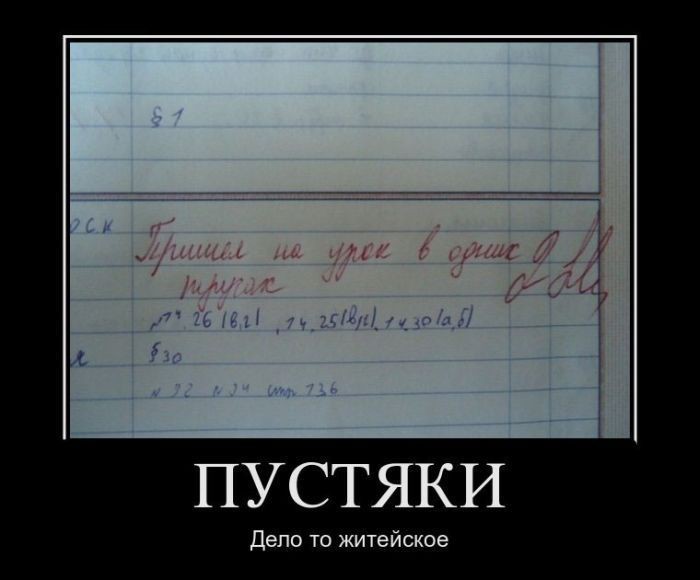 § 1
оск
Пришел на урок в одних
трусах
№14.26 (в,г), 14.25(в,г), 14.30(а,б)
§30
N 32 N 34 стр 136
ПУСТЯКИ
Дело то житейское